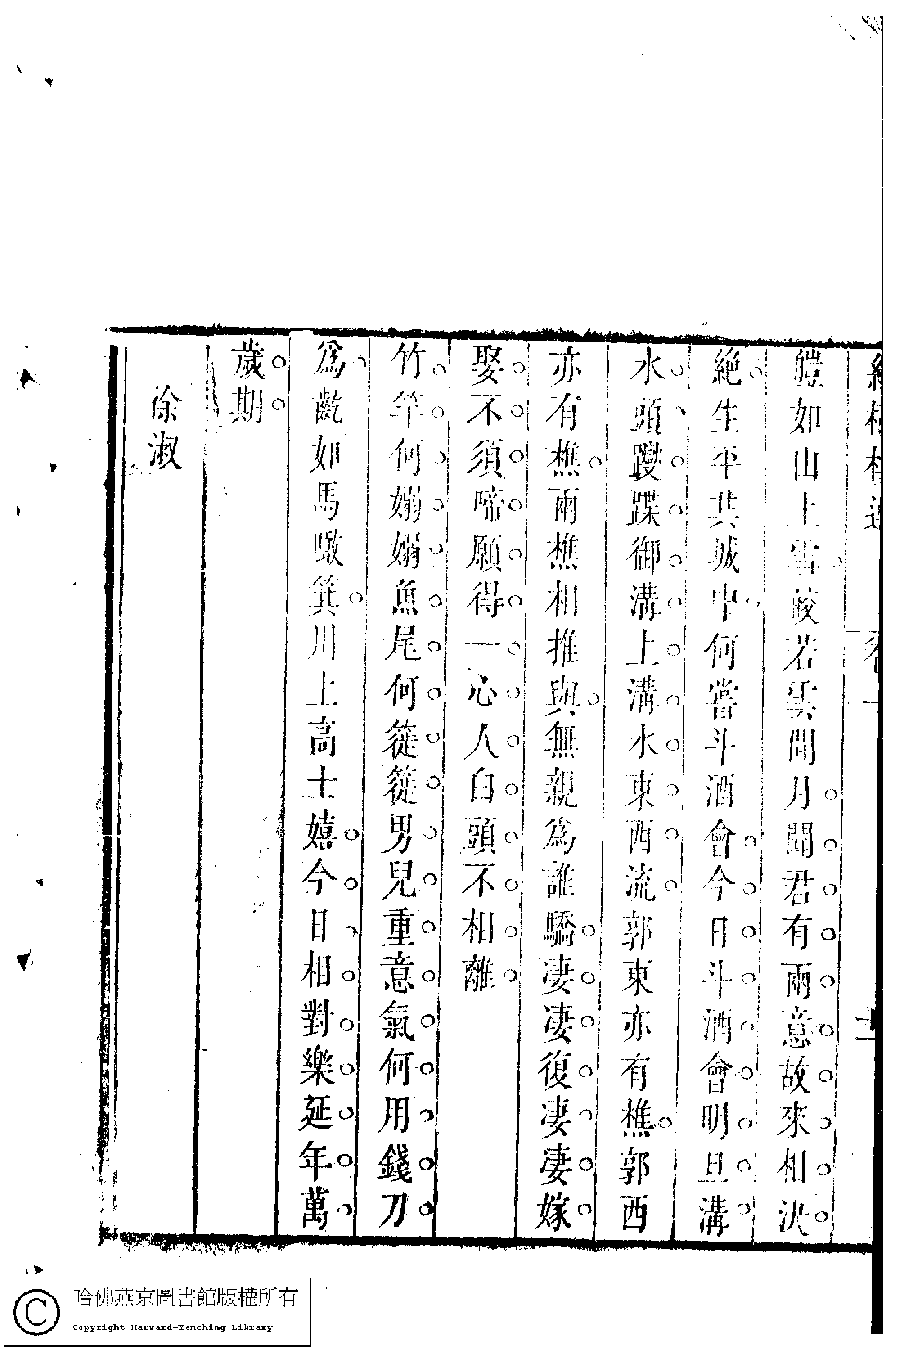 皚如山上雪皎若雲間月聞君有兩意故來相決
絶生平共城中何嘗斗酒會今日斗酒會明旦溝
水頭躞蹀御溝上溝水東西流郭東亦有樵郭西
亦有樵兩樵相推與無親爲誰驕淒淒復淒淒嫁
娶不須啼願得一心人白頭不相離
竹竿何嫋嫋魚尾何簁簁男兒重意氣何用錢刀
爲齕如馬噉箕川上高士嬉今日相對樂延年萬
歲期
徐淑
哈佛燕京圖書館版權所有
Copyright Harvard-Yenching Library